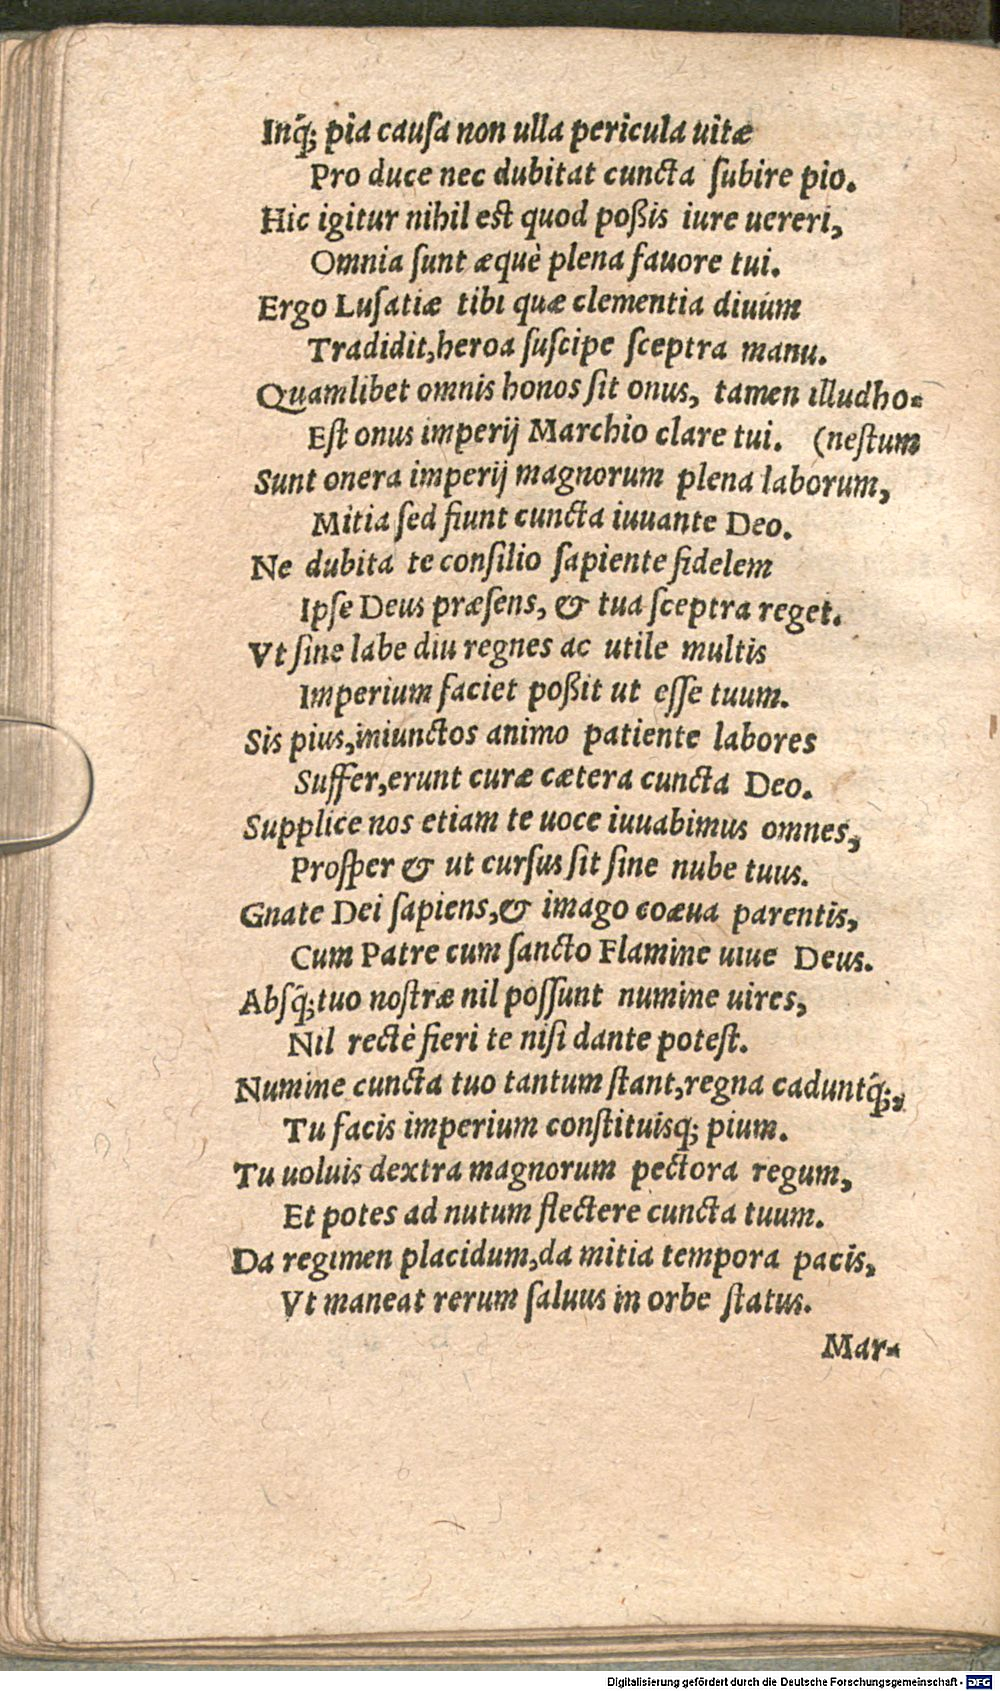 Inq́; pia cauſa non ulla pericula uitæ
Pro duce nec dubitat cuncta ſubire pio.
Hic igitur nihil est quod poßis iure uereri,
Omnia ſunt æquè plena fauore tui.
Ergo Luſatiæ tibi quæ clementia diuûm
Tradidit,heroa ſuſcipe ſceptra manu.
Quamlibet omnis honos ſit onus, tamen illud ho-
Eſt onus imperij Marchio clare tui. (neſtum
Sunt onera imperij magnorum plena laborum,
Mitia ſed fiunt cuncta iuuante Deo.
Ne dubita te conſilio ſapiente fidelem
Ipſe Deus præſens, & tua ſceptra reget.
Vt ſine labe diu regnes ac utile multis
Imperium faciet poßit ut eſſe tuum.
Sis pius,iniunctos animo patiente labores
Suffer,erunt curæ cætera cuncta Deo.
Supplice nos etiam te uoce iuuabimus omnes,
Proſper & ut curſus ſit ſine nube tuus.
Gnate Dei ſapiens,& imago coæua parentis,
Cum Patre cum ſancto Flamine uiue Deus.
Abſq́;tuo noſtræ nil poſſunt numine uires,
Nil rectè fieri te niſi dante poteſt.
Numine cuncta tuo tantum ſtant,regna caduntq́;,
Tu facis imperium conſtituisq; pium.
Tu uoluis dextra magnorum pectora regum,
Et potes ad nutum flectere cuncta tuum.
Da regimen placidum,da mitia tempora pacis,
Vt maneat rerum ſaluus in orbe ſtatus.
Mar-
Digitalisierung gefördert durch die Deutsche Forschungsgemeinschaft - DFG